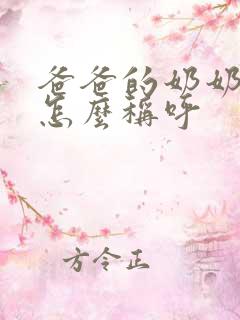 爸爸的奶奶
怎麼稱呼
方令正